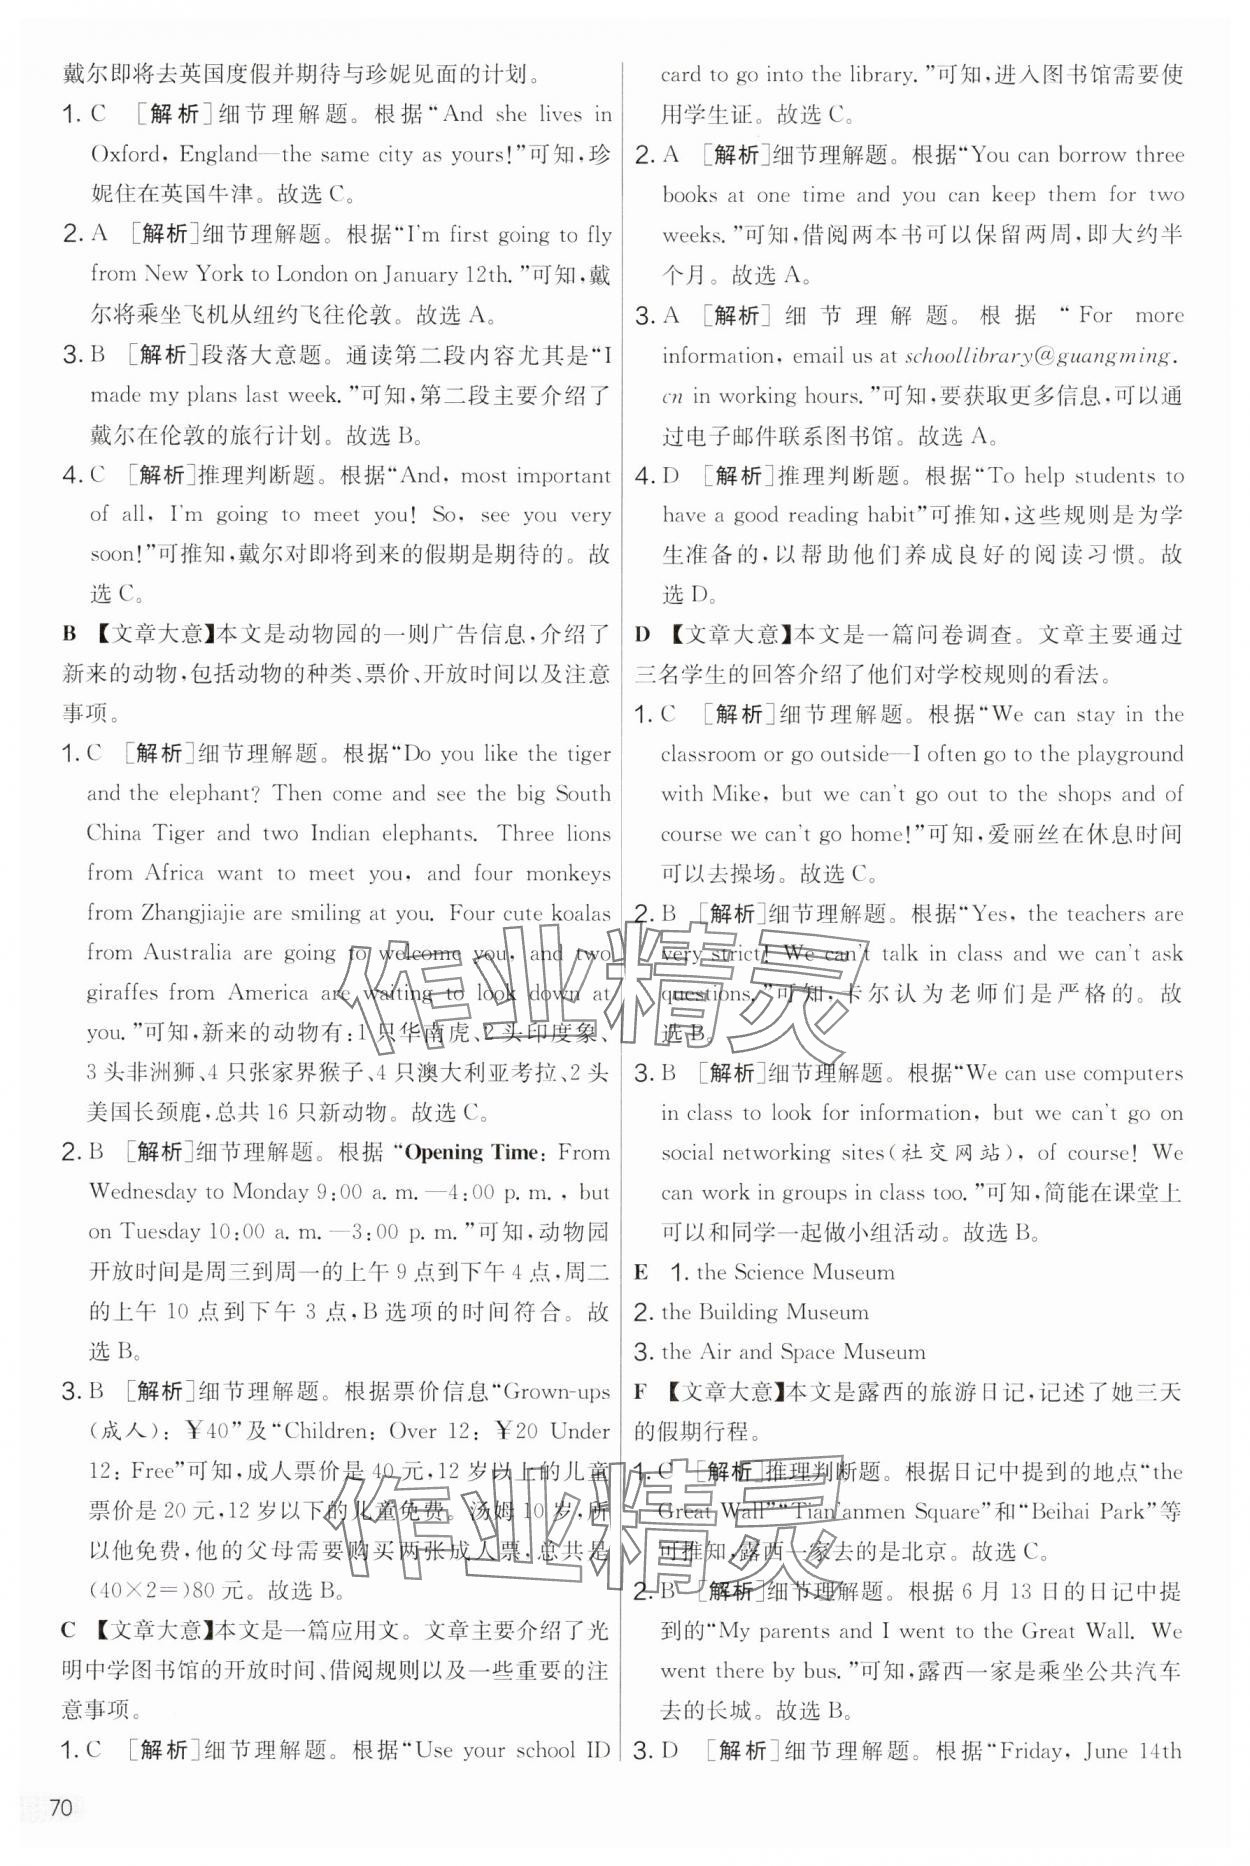 戴尔即将去英国度假并期待与珍妮见面的计划。
1. C ［解析］细节理解题。根据“And she lives in
Oxford, England—the same city as yours!”可知,珍
妮住在英国牛津。故选 C。
2. A ［解析］细节理解题。根据“I'm first going to fly
from New York to London on January 12th. ”可知,戴
尔将乘坐飞机从纽约飞往伦敦。故选 A。
3. B ［解析］段落大意题。通读第二段内容尤其是“I
made my plans last week. ”可知,第二段主要介绍了
戴尔在伦敦的旅行计划。故选 B。
4. C ［解析］推理判断题。根据“And, most important
of all, I'm going to meet you! So, see you very
soon!”可推知,戴尔对即将到来的假期是期待的。故
选 C。
B 【文章大意】本文是动物园的一则广告信息,介绍了
新来的动物,包括动物的种类、票价、开放时间以及注意
事项。
1. C ［解析］细节理解题。根据“Do you like the tiger
and the elephant? Then come and see the big South
China Tiger and two Indian elephants. Three lions
from Africa want to meet you, and four monkeys
from Zhangjiajie are smiling at you. Four cute koalas
from Australia are going to welcome you, and two
giraffes from America are waiting to look down at
you. ”可知,新来的动物有:1 只华南虎、2 头印度象、
3 头非洲狮、4 只张家界猴子、4 只澳大利亚考拉、2 头
美国长颈鹿,总共 16 只新动物。故选 C。
2. B ［解析］细节理解题。根据 “Opening Time: From
Wednesday to Monday 9:00 a. m. —4:00 p. m. , but
on Tuesday 10:00 a. m. —3:00 p. m. ”可知,动物园
开放时间是周三到周一的上午 9 点到下午 4 点,周二
的上午 10 点到下午 3 点,B 选项的时间符合。故
选 B。
3. B ［解析］细节理解题。根据票价信息“Grown-ups
(成人): ￥40”及“Children: Over 12: ￥20 Under
12: Free”可知,成人票价是 40 元,12 岁以上的儿童
票价是 20 元,12 岁以下的儿童免费。汤姆 10 岁,所
以他免费,他的父母需要购买两张成人票,总共是
(40×2=)80 元。故选 B。
C 【文章大意】本文是一篇应用文。文章主要介绍了光
明中学图书馆的开放时间、借阅规则以及一些重要的注
意事项。
1. C ［解析］细节理解题。根据“Use your school ID
70
card to go into the library. ”可知,进入图书馆需要使
用学生证。故选 C。
2. A ［解析］细节理解题。根据“You can borrow three
books at one time and you can keep them for two
weeks. ”可知,借阅两本书可以保留两周,即大约半
个月。故选 A。
3. A ［解析］细节理解题。根据 “For more
information, email us at schoollibrary@guangming.
cn in working hours. ”可知,要获取更多信息,可以通
过电子邮件联系图书馆。故选 A。
4. D ［解析］推理判断题。根据“To help students to
have a good reading habit”可推知,这些规则是为学
生准备的,以帮助他们养成良好的阅读习惯。故
选 D。
D 【文章大意】本文是一篇问卷调查。文章主要通过
三名学生的回答介绍了他们对学校规则的看法。
1. C ［解析］细节理解题。根据“We can stay in the
classroom or go outside—I often go to the playground
with Mike, but we can't go out to the shops and of
course we can't go home!”可知,爱丽丝在休息时间
可以去操场。故选 C。
2. B ［解析］细节理解题。根据“Yes, the teachers are
very strict! We can't talk in class and we can't ask
questions. ”可知,卡尔认为老师们是严格的。故
选 B。
3. B ［解析］细节理解题。根据“We can use computers
in class to look for information, but we can't go on
social networking sites(社交网站), of course! We
can work in groups in class too. ”可知,简能在课堂上
可以和同学一起做小组活动。故选 B。
E 1. the Science Museum
2. the Building Museum
3. the Air and Space Museum
F 【文章大意】本文是露西的旅游日记,记述了她三天
的假期行程。
1. C ［解析］推理判断题。根据日记中提到的地点“the
Great Wall”“Tian'anmen Square”和“Beihai Park”等
可推知,露西一家去的是北京。故选 C。
2. B ［解析］细节理解题。根据 6 月 13 日的日记中提
到的“My parents and I went to the Great Wall. We
went there by bus. ”可知,露西一家是乘坐公共汽车
去的长城。故选 B。
3. D ［解析］细节理解题。根据“Friday, June 14th
作业精灵
作业精灵